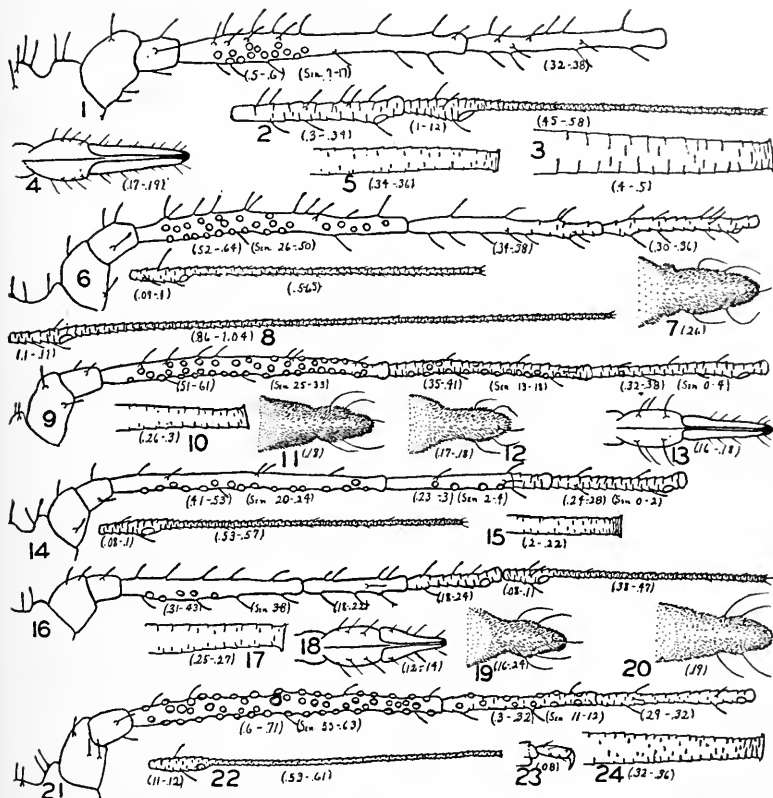 (.5-.6) (Sen. 9-17) (.32-.38)
1
2 (.3-.34) (.1-.12) (.45-.58)
4 (.17-.19) 5 (.34-.36) 3 (.4-.5)
6 (.52-.64) (Sen 26-50) (.34-.38) (.30-.36)
(.09-.1) (.5-.63) 7 (.26)
(.1-.11) (.86-1.04) 8
9 (.51-.61) (Sen 25-33) (.35-.41) (Sen 13-18) (.32-.38) (Sen 0-4)
(.26-.3) 10 11 (.18) 12 (.17-.18) 13 (.16-.18)
14 (.41-.53) (Sen 20-24) (.23-.3) (Sen 2-4) (.24-.28) (Sen 0-2)
(.08-.1) (.53-.57) 15 (.2-.22)
16 (.31-.43) (Sen 3-8) (.18-.22) (.18-.24) (.08-.1) (.38-.47)
17 (.25-.27) 18 (.12-.14) 19 (.16-.24) 20 (.19)
21 (.6-.71) (Sen 55-63) (.3-.32) (Sen 11-12) (.29-.32)
(.11-.12) 22 (.53-.61) 23 (.08) 24 (.32-.36)